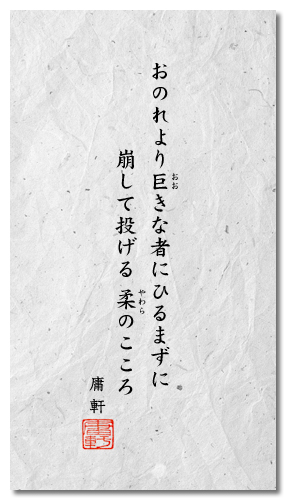 おのれより巨きな者にひるまずに
おお
崩して投げる 柔のこころ
やわら
庸軒